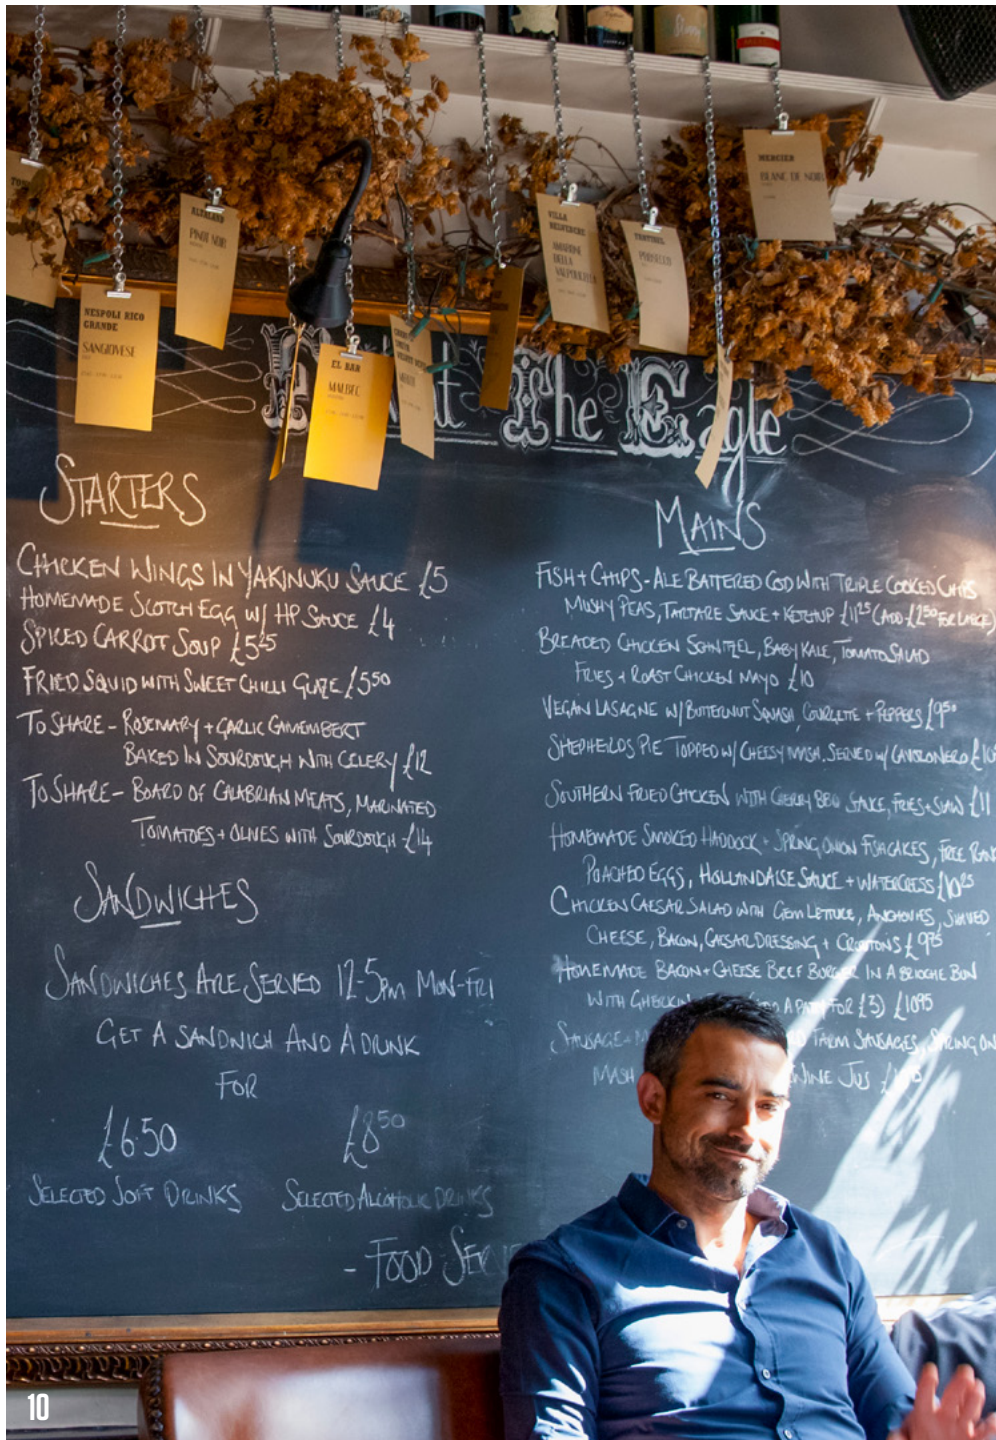 MERCIER
BLANC DE NOIR
ALABASTER
PINOT NOIR
VILLA
BELVEDERE
AMARONE
DELLA
VALPOLICELLA
PROSECCO
NESPOLI RICO
GRANDE
SANGIOVESE
EL BAR
MALBEC
The Eagle
STARTERS
CHICKEN WINGS IN YAKINUKU SAUCE £5
HOMEMADE SCOTCH EGG W/ HP SAUCE £4
SPICED CARROT SOUP £5.25
FRIED SQUID WITH SWEET CHILLI GLAZE £5.50
TO SHARE - ROSEMARY + GARLIC CAMEMBERT
BAKED IN SOURDOUGH WITH CELERY £12
TO SHARE - BOARD OF CALABRIAN MEATS, MARINATED
TOMATOES + OLIVES WITH SOURDOUGH - £14
SANDWICHES
SANDWICHES ARE SERVED 12-5pm MON-FRI
GET A SANDWICH AND A DRINK
FOR
£6.50 £8.50
SELECTED SOFT DRINKS SELECTED ALCOHOLIC DRINKS
- FOOD SERV
MAINS
FISH + CHIPS - ALE BATTERED COD WITH TRIPLE COOKED CHIPS
MUSHY PEAS, TARTARE SAUCE + KETCHUP £11.25 (ADD £2.50 FOR LARGE)
BREADED CHICKEN SCHNITZEL, BABY KALE, TOMATO SALAD
FRIES + ROAST CHICKEN MAYO £10
VEGAN LASAGNE W/ BUTTERNUT SQUASH COURGETTE + PEPPERS £9.50
SHEPHERDS PIE TOPPED W/ CHEESY MASH. SERVED W/ CAVOLONERO £10
SOUTHERN FRIED CHICKEN WITH CHERRY BBQ SAUCE, FRIES + SLAW £11
HOMEMADE SMOKED HADDOCK + SPRING ONION FISHCAKES, FREE RANG
POACHED EGGS, HOLLANDAISE SAUCE + WATERCRESS £10.25
CHICKEN CAESAR SALAD WITH GEM LETTUCE, ANCHOVIES, SHAVED
CHEESE, BACON, CAESAR DRESSING, + CROUTONS £9.75
HOMEMADE BACON + CHEESE BEEF BURGER IN A BRIOCHE BUN
WITH GHERKIN A PATTY FOR £3) £10.95
SAUSAGE + FARM SAUSAGES, SPRING ON
MASH WINE JUS
10